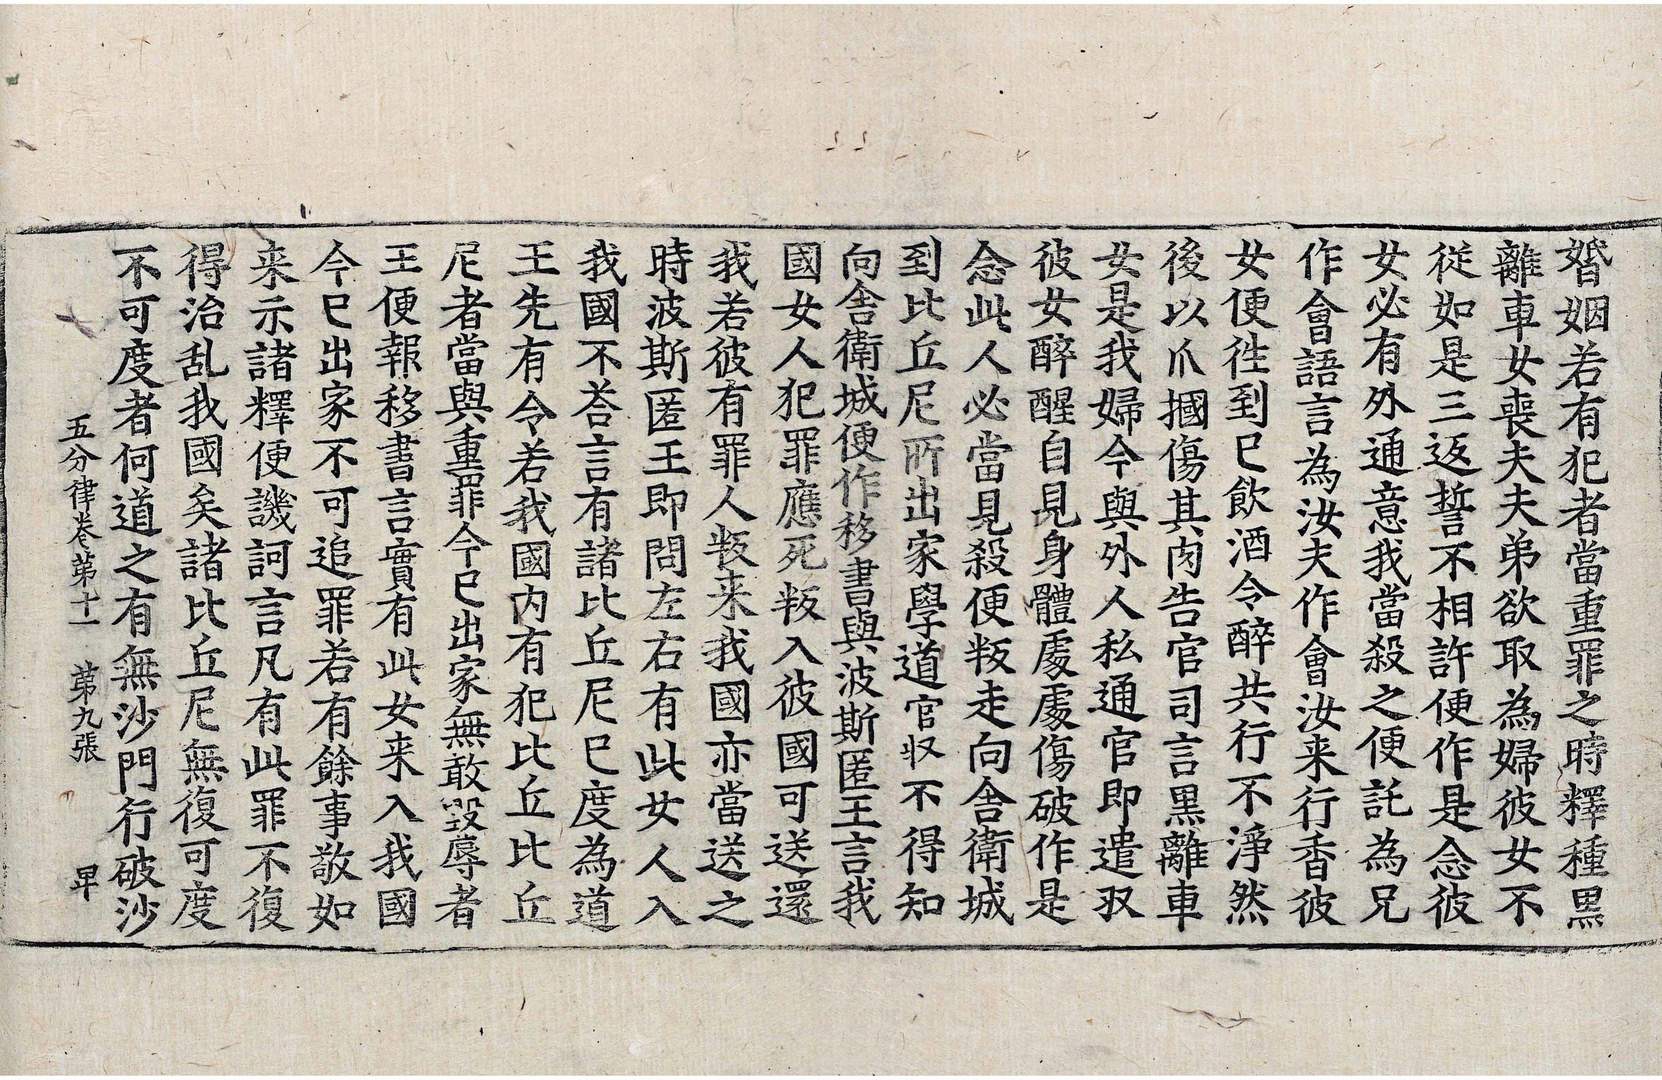 婚姻若有犯者當重罪之時釋種黒
離車女喪夫夫弟欲取為婦彼女不
従如是三返誓不相許便作是念彼
女必有外通意我當殺之便託為兄
作會語言為汝夫作會汝来行香彼
女便徃到已飲酒令醉共行不淨然
後以爪摑傷其肉告官司言黒離車
女是我婦今與外人私通官即遣収
彼女醉醒自見身體處處傷破作是
念此人必當見殺便叛走向舎衛城
到比丘尼所出家學道官収不得知
向舎衛城便作移書與波斯匿王言我
國女人犯罪應死叛入彼國可送還
我若彼有罪人叛来我國亦當送之
時波斯匿王即問左右有此女人入
我國不荅言有諸比丘尼已度為道
王先有令若我國内有犯比丘比丘
尼者當與重罪今已出家無敢毀辱者
王便報移書言實有此女来入我國
今已出家不可追罪若有餘事敬如
来示諸釋便譏訶言凡有此罪不復
得治乱我國矣諸比丘尼無復可度
不可度者何道之有無沙門行破沙
五分律卷第十一 第九張 早